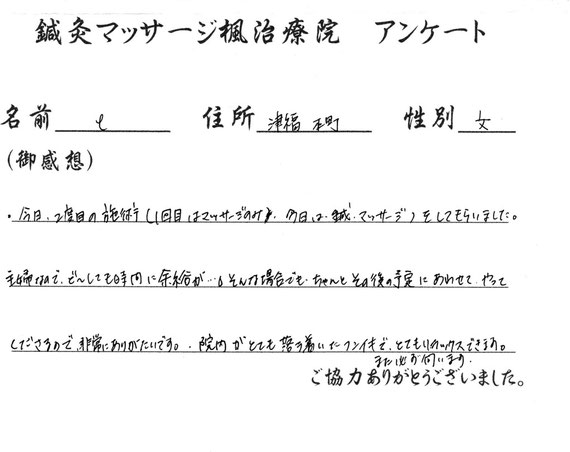 鍼灸マッサージ楓治療院 アンケート
名前 t 住所 津福本町 性別 女
(御感想)
・今日、2度目の施術(1回目はマッサージのみ、今日は、鍼、マッサージ)をしてもらいました。
主婦なので、どうしても時間に余裕が…。そんな場合でも、ちゃんとその後の予定にあわせて、やって
くださるので、非常にありがたいです。・院内がとても落ち着いたフンイキで、とてもリラックスできます。
また必ず伺います。
ご協力ありがとうございました。